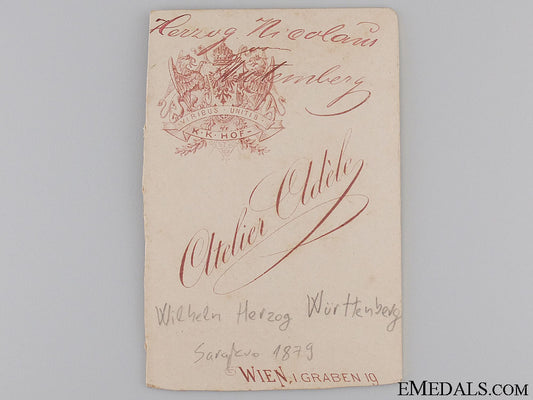 Herzog Nicolaus
von
Würtemberg
VIRIBUS · UNITIS
K·K·HOF-
Atelier Adèle
Wilhelm Herzog Württenberg
Sarajevo 1879
WIEN, I GRABEN 19
EMEDALS.COM